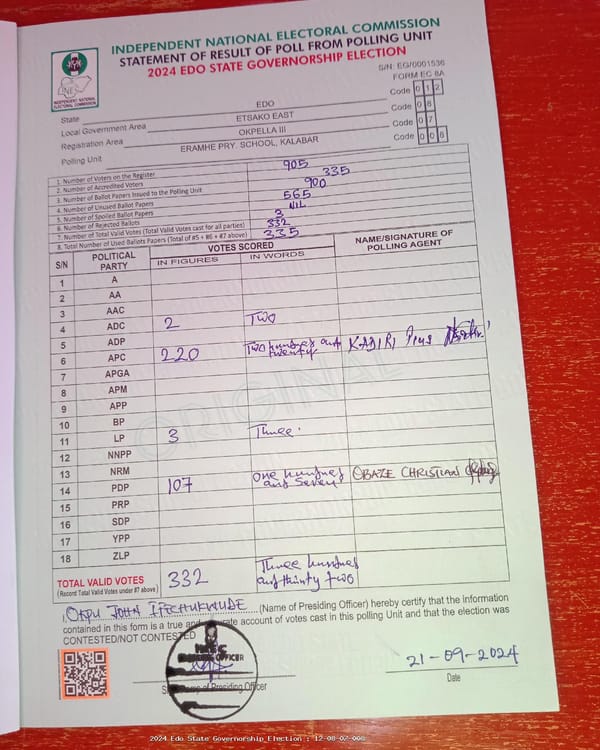 INDEPENDENT NATIONAL ELECTORAL COMMISSION
STATEMENT OF RESULT OF POLL FROM POLLING UNIT
2024 EDO STATE GOVERNORSHIP ELECTION
S/N: EG/0001536
FORM EC 8A
INDEPENDENT NATIONAL ELECTORAL COMMISSION
State EDO Code 0 1 2
Local Government Area ETSAKO EAST Code 0 8
Registration Area OKPELLA III Code 0 7
Polling Unit ERAMHE PRY. SCHOOL, KALABAR Code 0 0 8
1. Number of Voters on the Register 905
2. Number of Accredited Voters 335
3. Number of Ballot Papers Issued to the Polling Unit 900
4. Number of Unused Ballot Papers 565
5. Number of Spoiled Ballot Papers NIL
6. Number of Rejected Ballots 3
7. Number of Total Valid Votes (Total Valid Votes cast for all parties) 332
8. Total Number of Used Ballots Papers (Total of #5 + #6 + #7 above) 335
S/N POLITICAL PARTY VOTES SCORED NAME/SIGNATURE OF POLLING AGENT
IN FIGURES IN WORDS
1 A
2 AA
3 AAC
4 ADC 2 Two
5 ADP
6 APC 220 Two hundred and twenty KADIRI Pius
7 APGA
8 APM
9 APP
10 BP
11 LP 3 Three
12 NNPP
13 NRM
14 PDP 107 One hundred and seven OBAZE CHRISTIAN
15 PRP
16 SDP
17 YPP
18 ZLP
ORIGINAL
TOTAL VALID VOTES 332 Three hundred and thirty two
(Record Total Valid Votes under #7 above)
I, OKPU JOHN IFECHUKWUDE (Name of Presiding Officer) hereby certify that the information
contained in this form is a true and accurate account of votes cast in this polling Unit and that the election was
CONTESTED/NOT CONTESTED
INEC
OFFICER
of Presiding Officer
21-09-2024
Date
2024 Edo State Governorship Election : 12-08-07-008